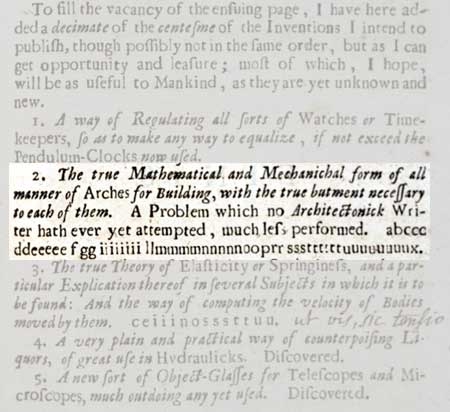 To fill the vacancy of the enſuing page, I have here ad-
ded a decimate of the centeſme of the Inventions I intend to
publiſh, though poſſibly not in the ſame order, but as I can
get opportunity and leaſure; moſt of which, I hope,
will be as uſeful to Mankind, as they are yet unknown and
new.
1. A way of Regulating all ſorts of Watches or Time-
keepers, ſo as to make any way to equalize, if not exceed the
Pendulum-Clocks now uſed.
2. The true Mathematical and Mechanichal form of all
manner of Arches for Building, with the true butment neceſſary
to each of them. A Problem which no Architectonick Wri-
ter hath ever yet attempted, much leſs performed. abccc
ddeeeee f gg iiiiiiii llmmmmnnnnnooprr sssttttttuuuuuuuux.
3. The true Theory of Elaſticity or Springineſs, and a par-
ticular Explication thereof in ſeveral Subjects in which it is to
be found: And the way of computing the velocity of Bodies
moved by them. ceiiinosssttuu. ut vis, sic tensio
4. A very plain and practical way of counterpoiſing Li-
quors, of great uſe in Hydraulicks. Diſcovered.
5. A new ſort of Object-Glaſſes for Teleſcopes and Mi-
croſcopes, much outdoing any yet uſed. Diſcovered.